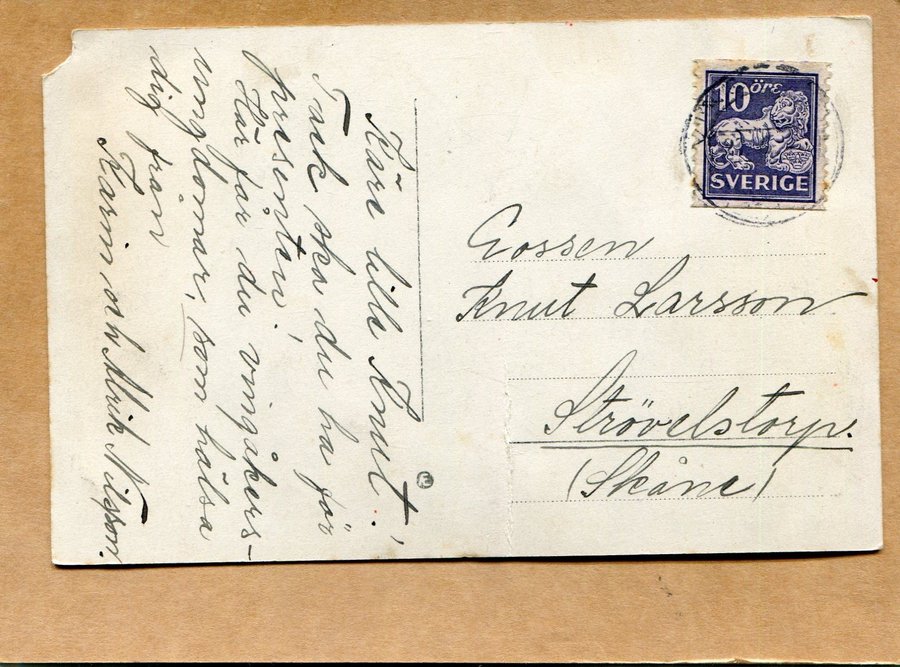 Käre lille Knut!
Tack ska du ha för
presenten.
Här får du vingåkers-
ungdomar, som hälsa
dig från
Karin och Alrik Nilsson.
10 öre
SVERIGE
Gossen
Knut Larsson
Strövelstorp.
(Skåne)